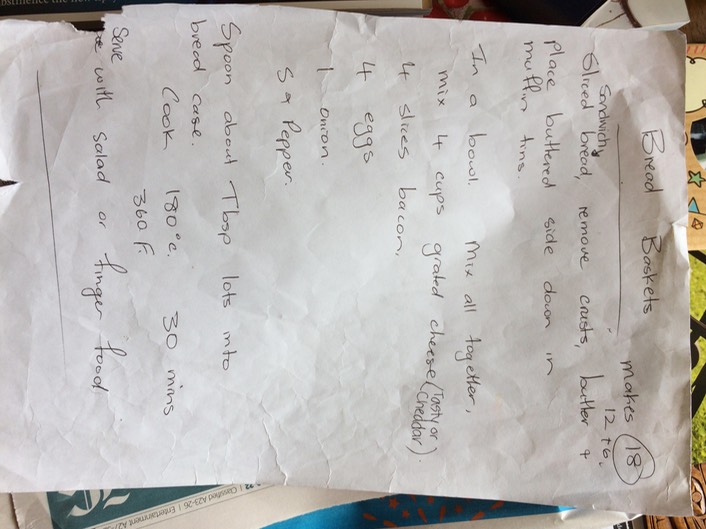 Bread Baskets makes 18
12 + 6.
Sandwich
Sliced bread, remove crusts, butter &
place buttered side down in
muffin tins.
In a bowl. Mix all together,
mix 4 cups grated cheese (Tasty or
Cheddar).
4 slices bacon,
4 eggs
1 onion.
S & Pepper.
Spoon about Tbsp lots into
bread case.
Cook 180°c. 30 mins
360 F.
Serve
with salad or finger food
Classified A23-26 | Entertainment A27